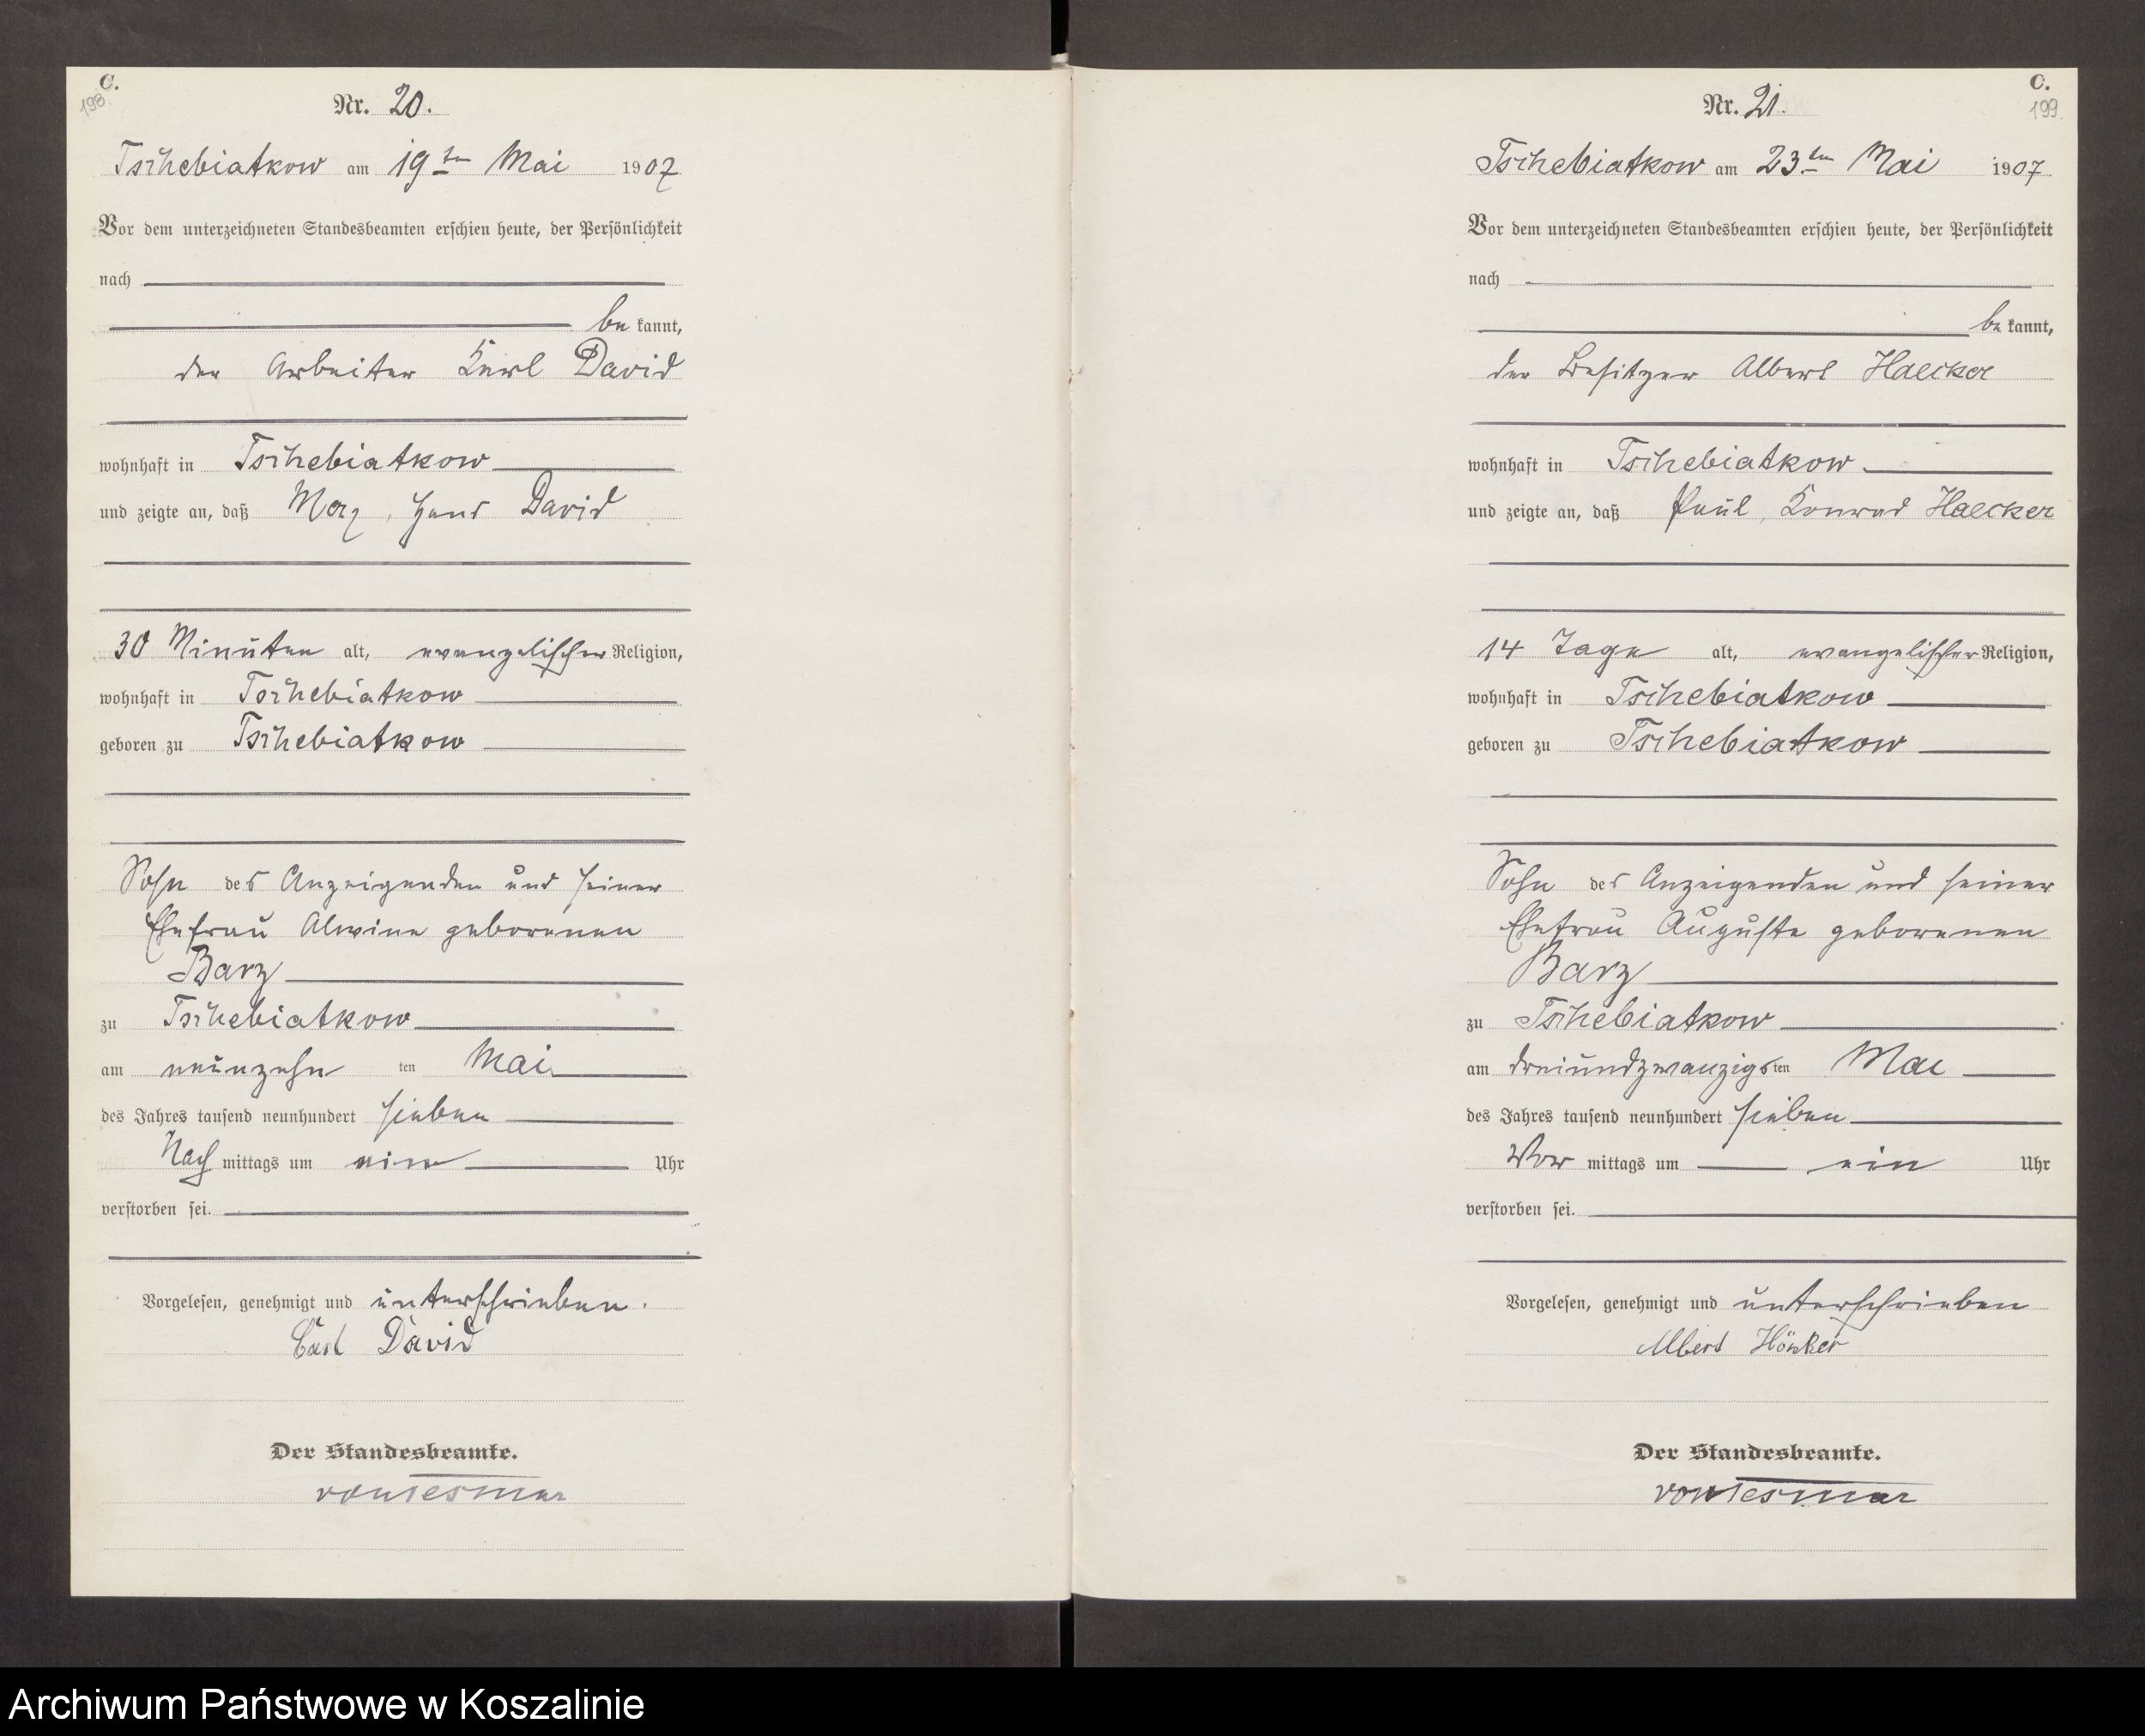 C.
198.
Nr. 20.
Tschebiatkow am 19ten Mai 1907
Vor dem unterzeichneten Standesbeamten erschien heute, der Persönlichkeit
nach
be kannt,
der Arbeiter Karl David
wohnhaft in Tschebiatkow
und zeigte an, daß Max, Hans David
30 Minuten alt, evangelischer Religion,
wohnhaft in Tschebiatkow
geboren zu Tschebiatkow
Sohn des Anzeigenden und seiner
Ehefrau Alwine geborenen
Barz
zu Tschebiatkow
am neunzehn ten Mai
des Jahres tausend neunhundert sieben
Nach mittags um ein Uhr
verstorben sei.
Vorgelesen, genehmigt und unterschrieben.
Carl David
Der Standesbeamte.
von Tesmar
C.
199.
Nr. 21.
Tschebiatkow am 23ten Mai 1907
Vor dem unterzeichneten Standesbeamten erschien heute, der Persönlichkeit
nach
be kannt,
der Besitzer Albert Haecker
wohnhaft in Tschebiatkow
und zeigte an, daß Paul, Konrad Haecker
14 Tage alt, evangelischer Religion,
wohnhaft in Tschebiatkow
geboren zu Tschebiatkow
Sohn des Anzeigenden und seiner
Ehefrau Auguste geborenen
Barz
zu Tschebiatkow
am dreiundzwanzigsten Mai
des Jahres tausend neunhundert sieben
Vor mittags um ein Uhr
verstorben sei.
Vorgelesen, genehmigt und unterschrieben
Albert Häcker
Der Standesbeamte.
von Tesmar
Archiwum Państwowe w Koszalinie